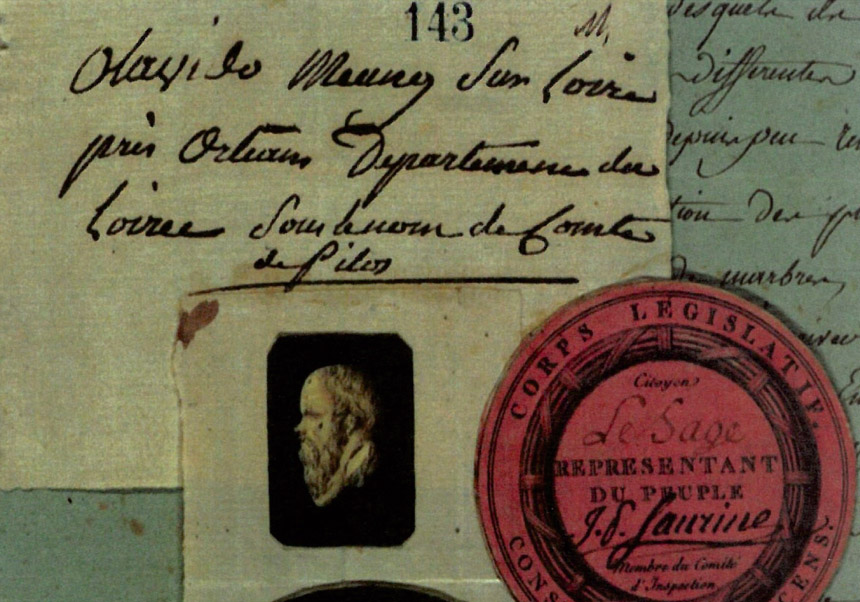 143
M,
Olavido Meung Sur Loire
près Orleans Departement du
Loiret Sous le nom de Comte
de Pilos
desquels
differentes
depuis peu
tion des
de marbres,
avec
CORPS LEGISLATIF.
Citoyen
Le Sage
REPRESENTANT
DU PEUPLE
J. P. Laurine
Membre du Comité
d'Inspection
CONS
CENS.